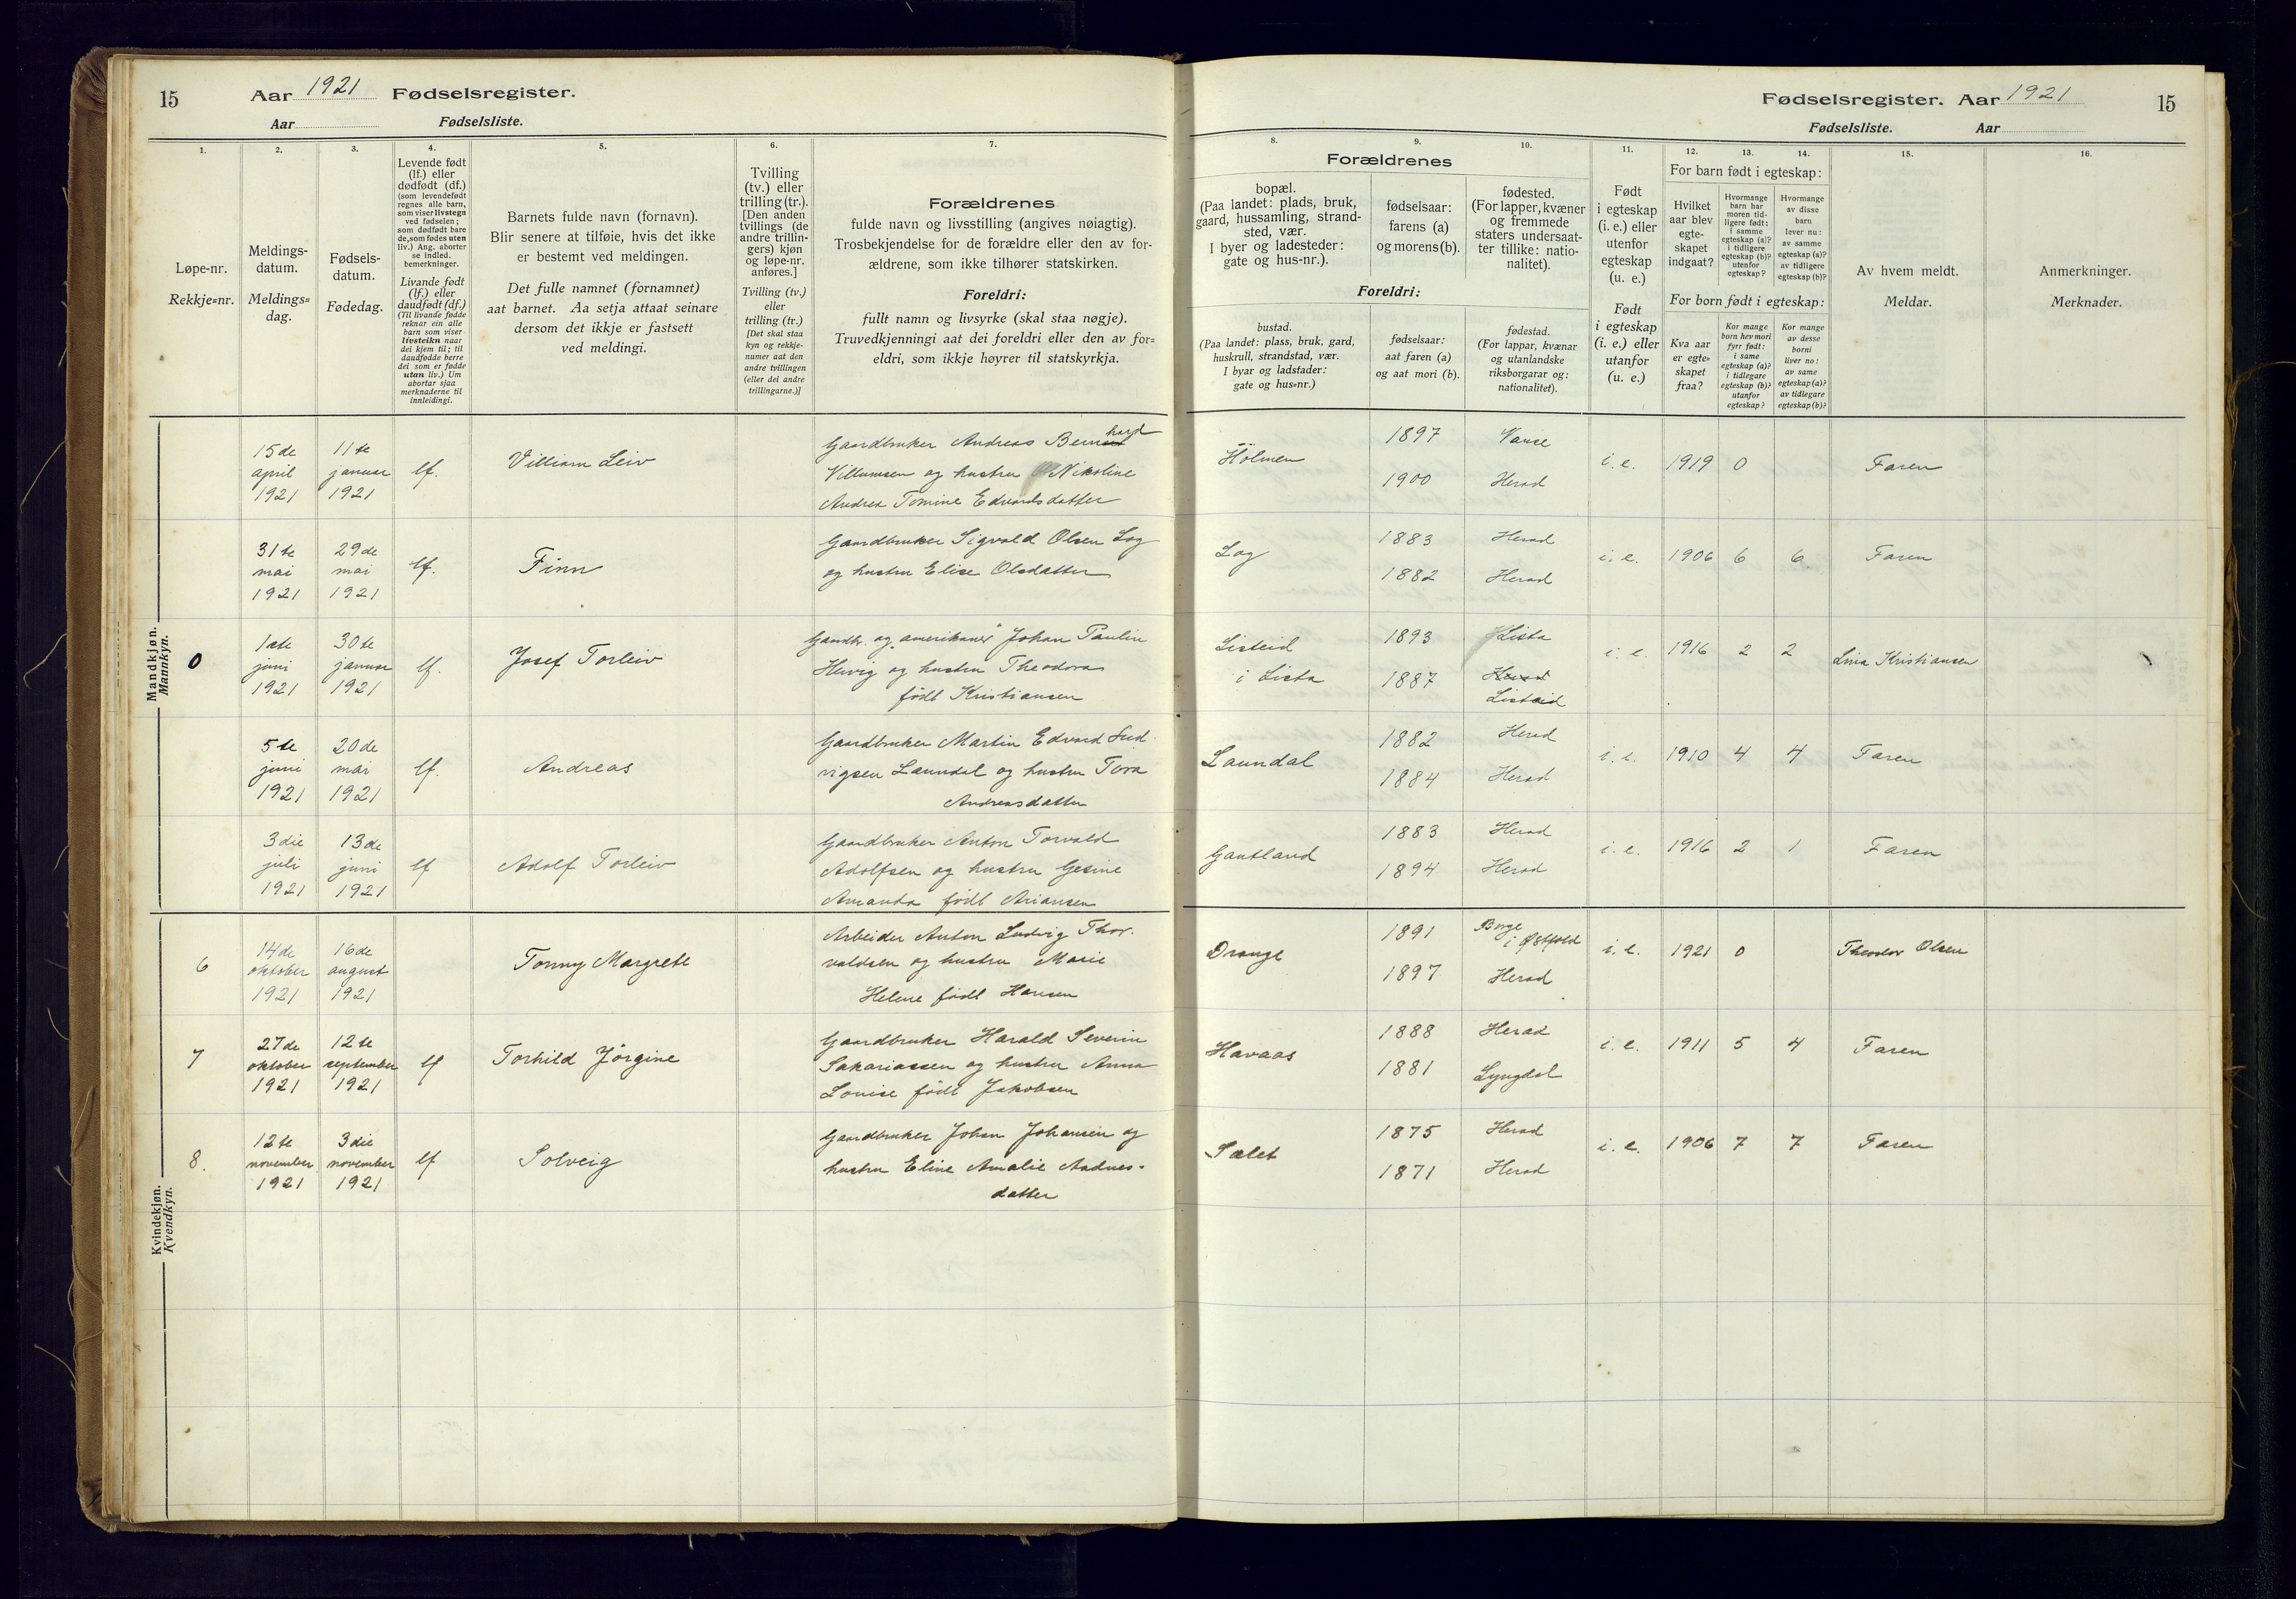 15
Aar 1921 Fødselsregister.
Aar Fødselsliste.
1.
2.
3.
4.
5.
6.
7.
Løpe-nr.
Rekkje=nr.
Meldings-
datum.
Meldings=
dag.
Fødsels-
datum.
Fødedag.
Levende født
(lf.) eller
dødfødt (df.)
(som levendefødt
regnes alle barn,
som viser livstegn
ved fødselen;
som dødfødt bare
de, som fødes uten
liv.) Ang. aborter
se indled.
bemerkninger.
Livande født
(lf.) eller
daudfødt (df.)
(Til livande fødde
reknar ein alle
barn som viser
livsteikn naar
dei kjem til; til
daudfødde berre
dei som er fødde
utan liv.) Um
abortar sjaa
merknaderne til
innleidingi.
Barnets fulde navn (fornavn).
Blir senere at tilføie, hvis det ikke
er bestemt ved meldingen.
Det fulle namnet (fornamnet)
aat barnet. Aa setja attaat seinare
dersom det ikkje er fastsett
ved meldingi.
Tvilling
(tv.) eller
trilling (tr.).
[Den anden
tvillings (de
andre trillin-
gers) kjøn
og løpe-nr.
anføres.]
Tvilling (tv.)
eller
trilling (tr.)
[Det skal staa
kyn og rekkje-
numer aat den
andre tvillingen
(eller dei andre
trillingarne.)]
Forældrenes
fulde navn og livsstilling (angives nøiagtig).
Trosbekjendelse for de forældre eller den av for-
ældrene, som ikke tilhører statskirken.
Foreldri:
fullt namn og livsyrke (skal staa nøgje).
Truvedkjenningi aat dei foreldri eller den av for=
eldri, som ikkje høyrer til statskyrkja.
Mandkjøn.
Mannkyn.
15de
april
1921
11te
januar
1921
lf.
Villiam Leiv
Gaardbruker Andreas Bernhard
Villumsen og hustru Nikoline
Andrea Tomine Edvardsdatter
31te
mai
1921
29de
mai
1921
lf.
Finn
Gaardbruker Sigvald Olsen Log
og hustru Elise Olsdatter
0
1ste
juni
1921
30te
januar
1921
lf.
Josef Torleiv
Gaardbr. og „amerikaner" Johan Paulin
Hervig og hustru Theodora
født Kristiansen
5te
juni
1921
20de
mai
1921
lf.
Andreas
Gaardbruker Martin Edvard Lud-
vigsen Laundal og hustru Tora
Andreasdatter
3die
juli
1921
13de
juni
1921
lf
Adolf Torleiv
Gaardbruker Anton Torvald
Adolfsen og hustru Gesine
Amanda født Ariansen
Kvindekjøn.
Kvendkyn.
6
14de
oktober
1921
16de
august
1921
Tonny Margrete
Arbeider Anton Ludvig Thor-
valdsen og hustru Marie
Helene født Hansen
7
27de
oktober
1921
12te
september
1921
lf
Torhild Jörgine
Gaardbruker Harald Severin
Sakariassen og hustru Anna
Louise født Jakobsen
8.
12te
november
1921
3die
november
1921
lf
Solveig
Gaardbruker Johan Johansen og
hustru Eline Amalie Aadnes-
datter
Fødselsregister. Aar 1921
15
Fødselsliste. Aar
8.
9.
10.
11.
12.
13.
14.
15.
16.
Forældrenes
bopæl.
(Paa landet: plads, bruk,
gaard, hussamling, strand-
sted, vær.
I byer og ladesteder:
gate og hus-nr.).
fødselsaar:
farens (a)
og morens (b).
fødested.
(For lapper, kvæner
og fremmede
staters undersaat-
ter tillike: natio-
nalitet).
Foreldri:
bustad.
(Paa landet: plass, bruk, gard,
huskrull, strandstad, vær.
I byar og ladstader:
gate og hus=nr.)
fødselsaar:
aat faren (a)
og aat mori (b).
fødestad.
(For lappar, kvænar
og utanlandske
riksborgarar og:
nationalitet).
Født
i egteskap
(i. e.) eller
utenfor
egteskap
(u. e.)
Født
i egteskap
(i. e.) eller
utanfor
(u. e.)
For barn født i egteskap:
Hvilket
aar blev
egte-
skapet
indgaat?
Hvormange
barn har
moren tid-
ligere født:
i samme
egteskap (a)?
i tidligere
egteskap (b)?
utenfor
egteskap?
Hvormange
av disse
barn
lever nu:
av samme
egteskap (a)?
av tidligere
egteskap (b)?
For born født i egteskap:
Kva aar
er egte=
skapet
fraa?
Kor mange
born hev mori
fyrr født:
i same
egteskap (a)?
i tidlegare
egteskap (b)?
utanfor
egteskap?
Kor mange
av desse
borni
liver no:
av same
egteskap (a)?
av tidlegare
egteskap (b)?
Av hvem meldt.
Meldar.
Anmerkninger.
Merknader.
Hölmen
1897
1900
Vanse
Herad
i. e. 1919 0
Faren
Log
1883
1882
Herad
Herad
i. e. 1906 6 6
Faren
Listeid
i Lista
1893
1887
Lista
Herad
Listeid
i. e. 1916 2 2
Lina Kristiansen
Laundal
1882
1884
Herad
Herad
i. e. 1910 4 4
Faren
Gautland
1883
1894
Herad
Herad
i. e. 1916 2 1
Faren
Drange
1891
1897
Borge
i Østfold
Herad
i. e. 1921 0
Theodor Olsen
Havaas
1888
1881
Herad
Lyngdal
i. e. 1911 5 4
Faren
Sælet
1875
1871
Herad
Herad
i. e. 1906 7 7
Faren